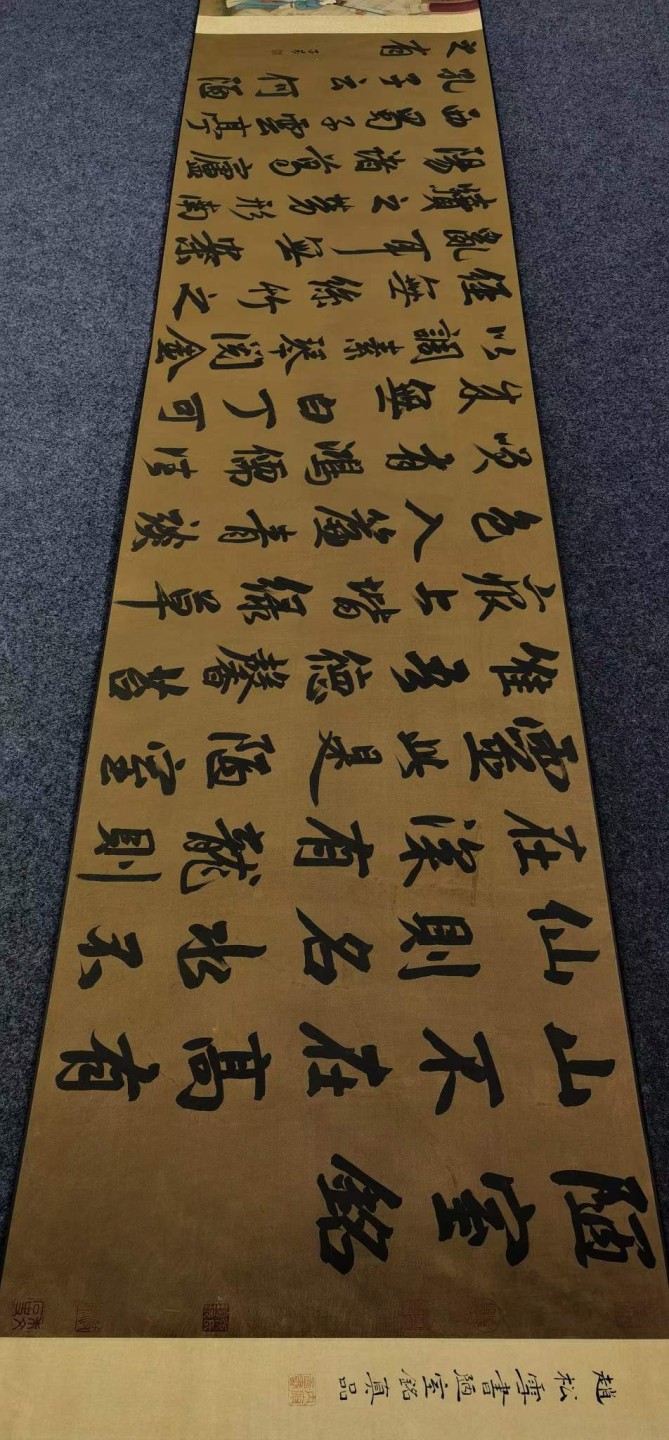 趙松雪書陋室銘真品
陋室銘
山不在高有
仙則名水不
在深有龍則
靈此是陋室
惟吾德馨苔
痕上堦綠草
色入簾青談
笑有鴻儒往
来無白丁可
以調素琴閱金
經無絲竹之
亂耳無案
牘之勞形南
陽諸葛廬
西蜀子雲亭
孔子云何陋
之有
子昂